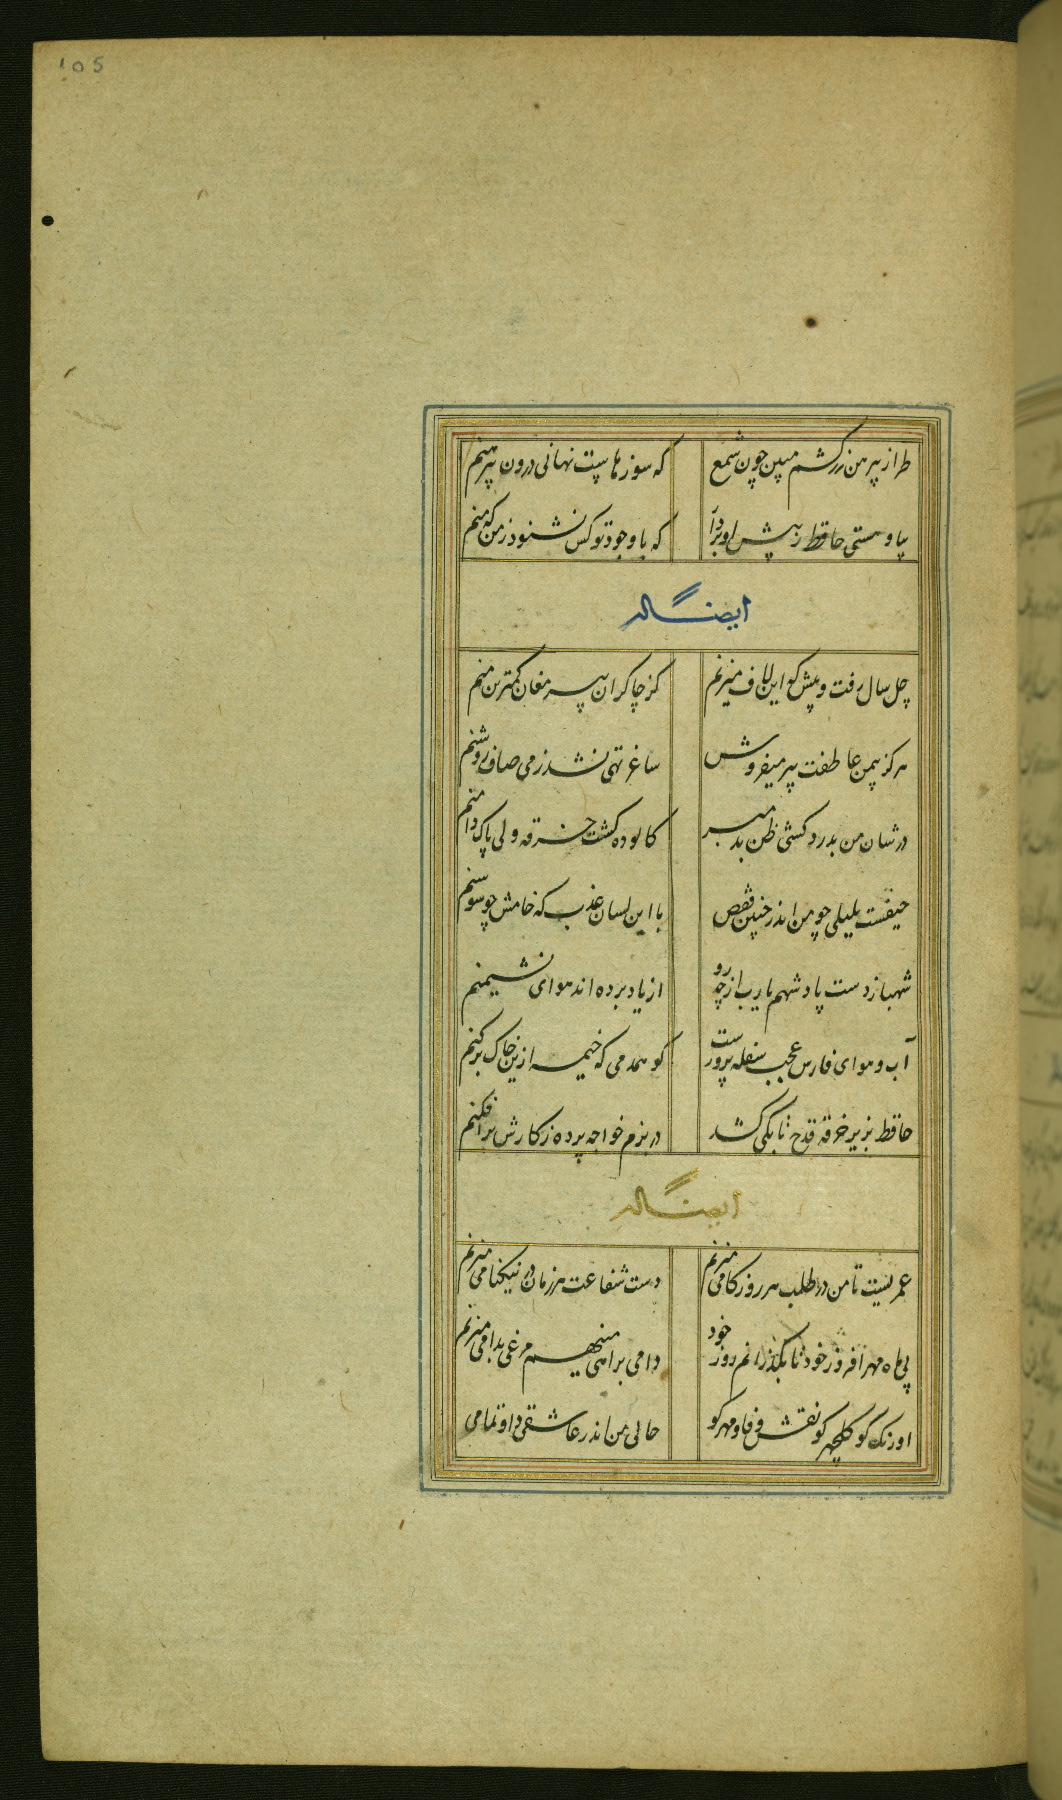 105
طراز پیرهن زرکشم مبین چون شمع که سوزهاست نهانی درون پیرهنم
بیا و هستی حافظ ز پیش او بردار که با وجود تو کس نشنود ز من که منم
ایضا له
چل سال رفت و بیش که این لاف میزنم کز چاکران پیر مغان کمترین منم
هرگز بیمن عاطفت پیر میفروش ساغر تهی نشد ز می صاف روشنم
در شان من بدرد کشی ظن بد مبر کالوده گشت خرقه ولی پاک دامنم
حیفست بلبلی چو من اندر چنین قفص با این لسان عذب که خامش چو سوسنم
شهباز دست پادشهم یا رب از چه رو از یاد برده اند هوای نشیمنم
آب و هوای فارس عجب سفله پرورست کو همدمی که خیمه ازین خاک برکنم
حافظ بزیر خرقه قدح تا بکی کشد در بزم خواجه پرده ز کارش برافکنم
ایضا له
عمریست تا من در طلب هر روز کامی میزنم دست شفاعت هر زمان در نیکنامی میزنم
بی ماه مهر افروز خود تا بگذرانم روز خود دامی براهی مینهم مرغی بدامی میزنم
اورنگ کو گلچهر کو نقش وفا و مهر کو حالی من اندر عاشقی داو تمامی